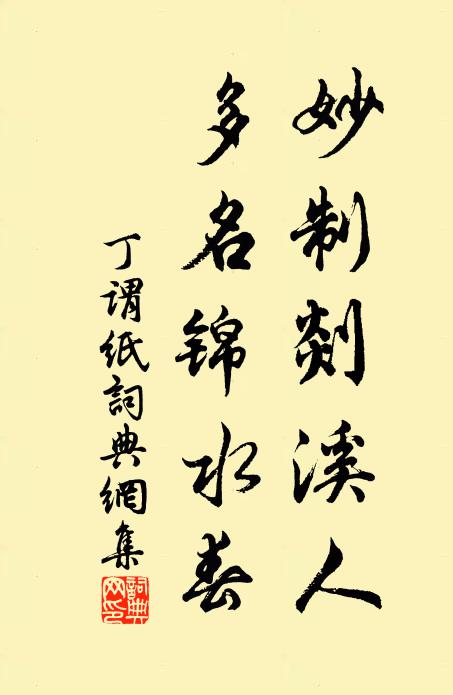 妙制剡溪人
多名锦水春
丁谓纸詞典網集
詞典网印